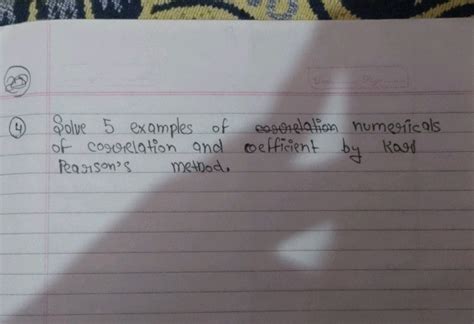 4 Solve 5 examples of correlation numericals
of correlation and coefficient by Karl
Pearson's method.